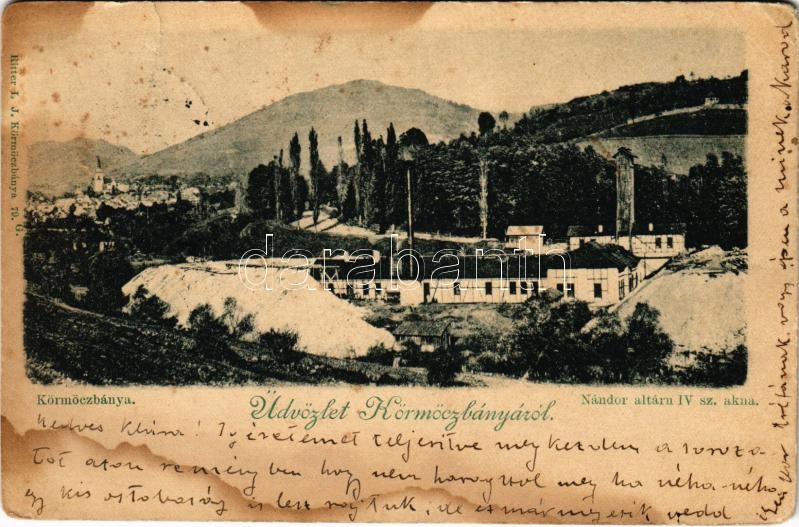 Ritter I. J. Körmöczbánya 79. G.
darabanth
Körmöczbánya.
Üdvözlet Körmöczbányáról.
Nándor altárn IV sz. akna.
Kedves Klára! Igéretemet teljesitve megkezdem a soroza-
tot azon reményben hogy nem haragszol meg ha néha-néha
egy kis ostobaság is lesz rajtuk, de ez már megesik